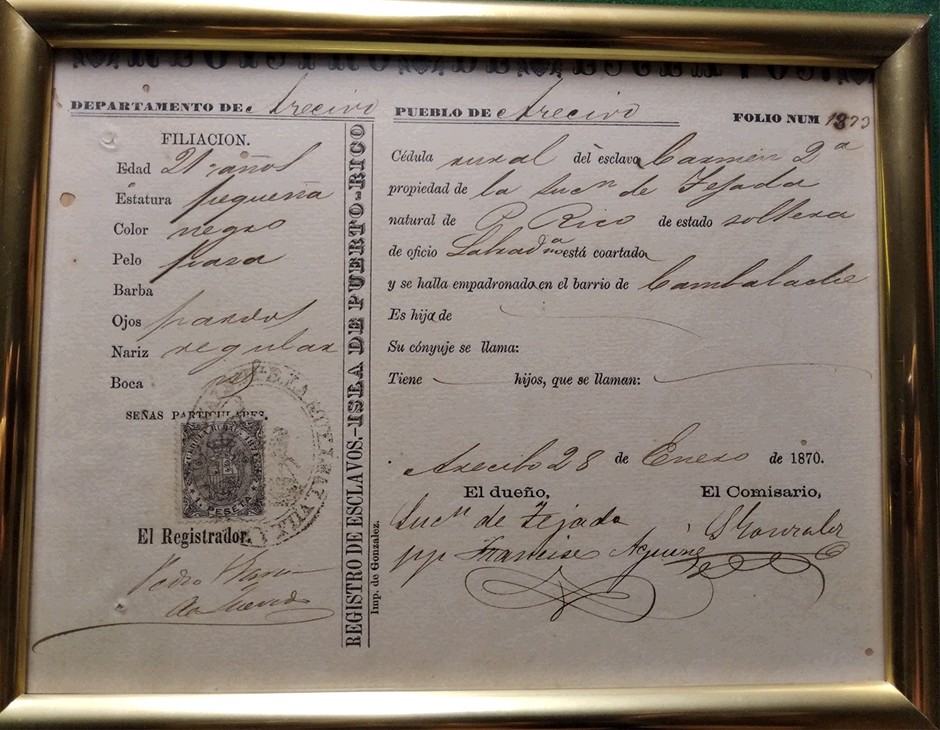 REGISTRO DE ESCLAVOS.
DEPARTAMENTO DE Arecivo
PUEBLO DE Arecivo
FOLIO NUM 1373
FILIACION.
Edad 21 años
Estatura pequeña
Color negro
Pelo pasa
Barba
Ojos pardos
Nariz regular
Boca
SEÑAS PARTICULARES.
1 PESETA
El Registrador.
Pedro
REGISTRO DE ESCLAVOS.-ISLA DE PUERTO-RICO
Imp. de Gonzalez.
Cédula rural del esclavo Carmen 2ª
propiedad de la Sucn de Tejada
natural de P. Rico de estado soltera
de oficio Labradª no está coartada
y se halla empadronado en el barrio de Cambalache
Es hija de
Su cónyuje se llama:
Tiene hijos, que se llaman:
Arecibo 28 de Enero de 1870.
El dueño,
El Comisario,
Sucn de Tejada
pp Francisco
S Gonzalez